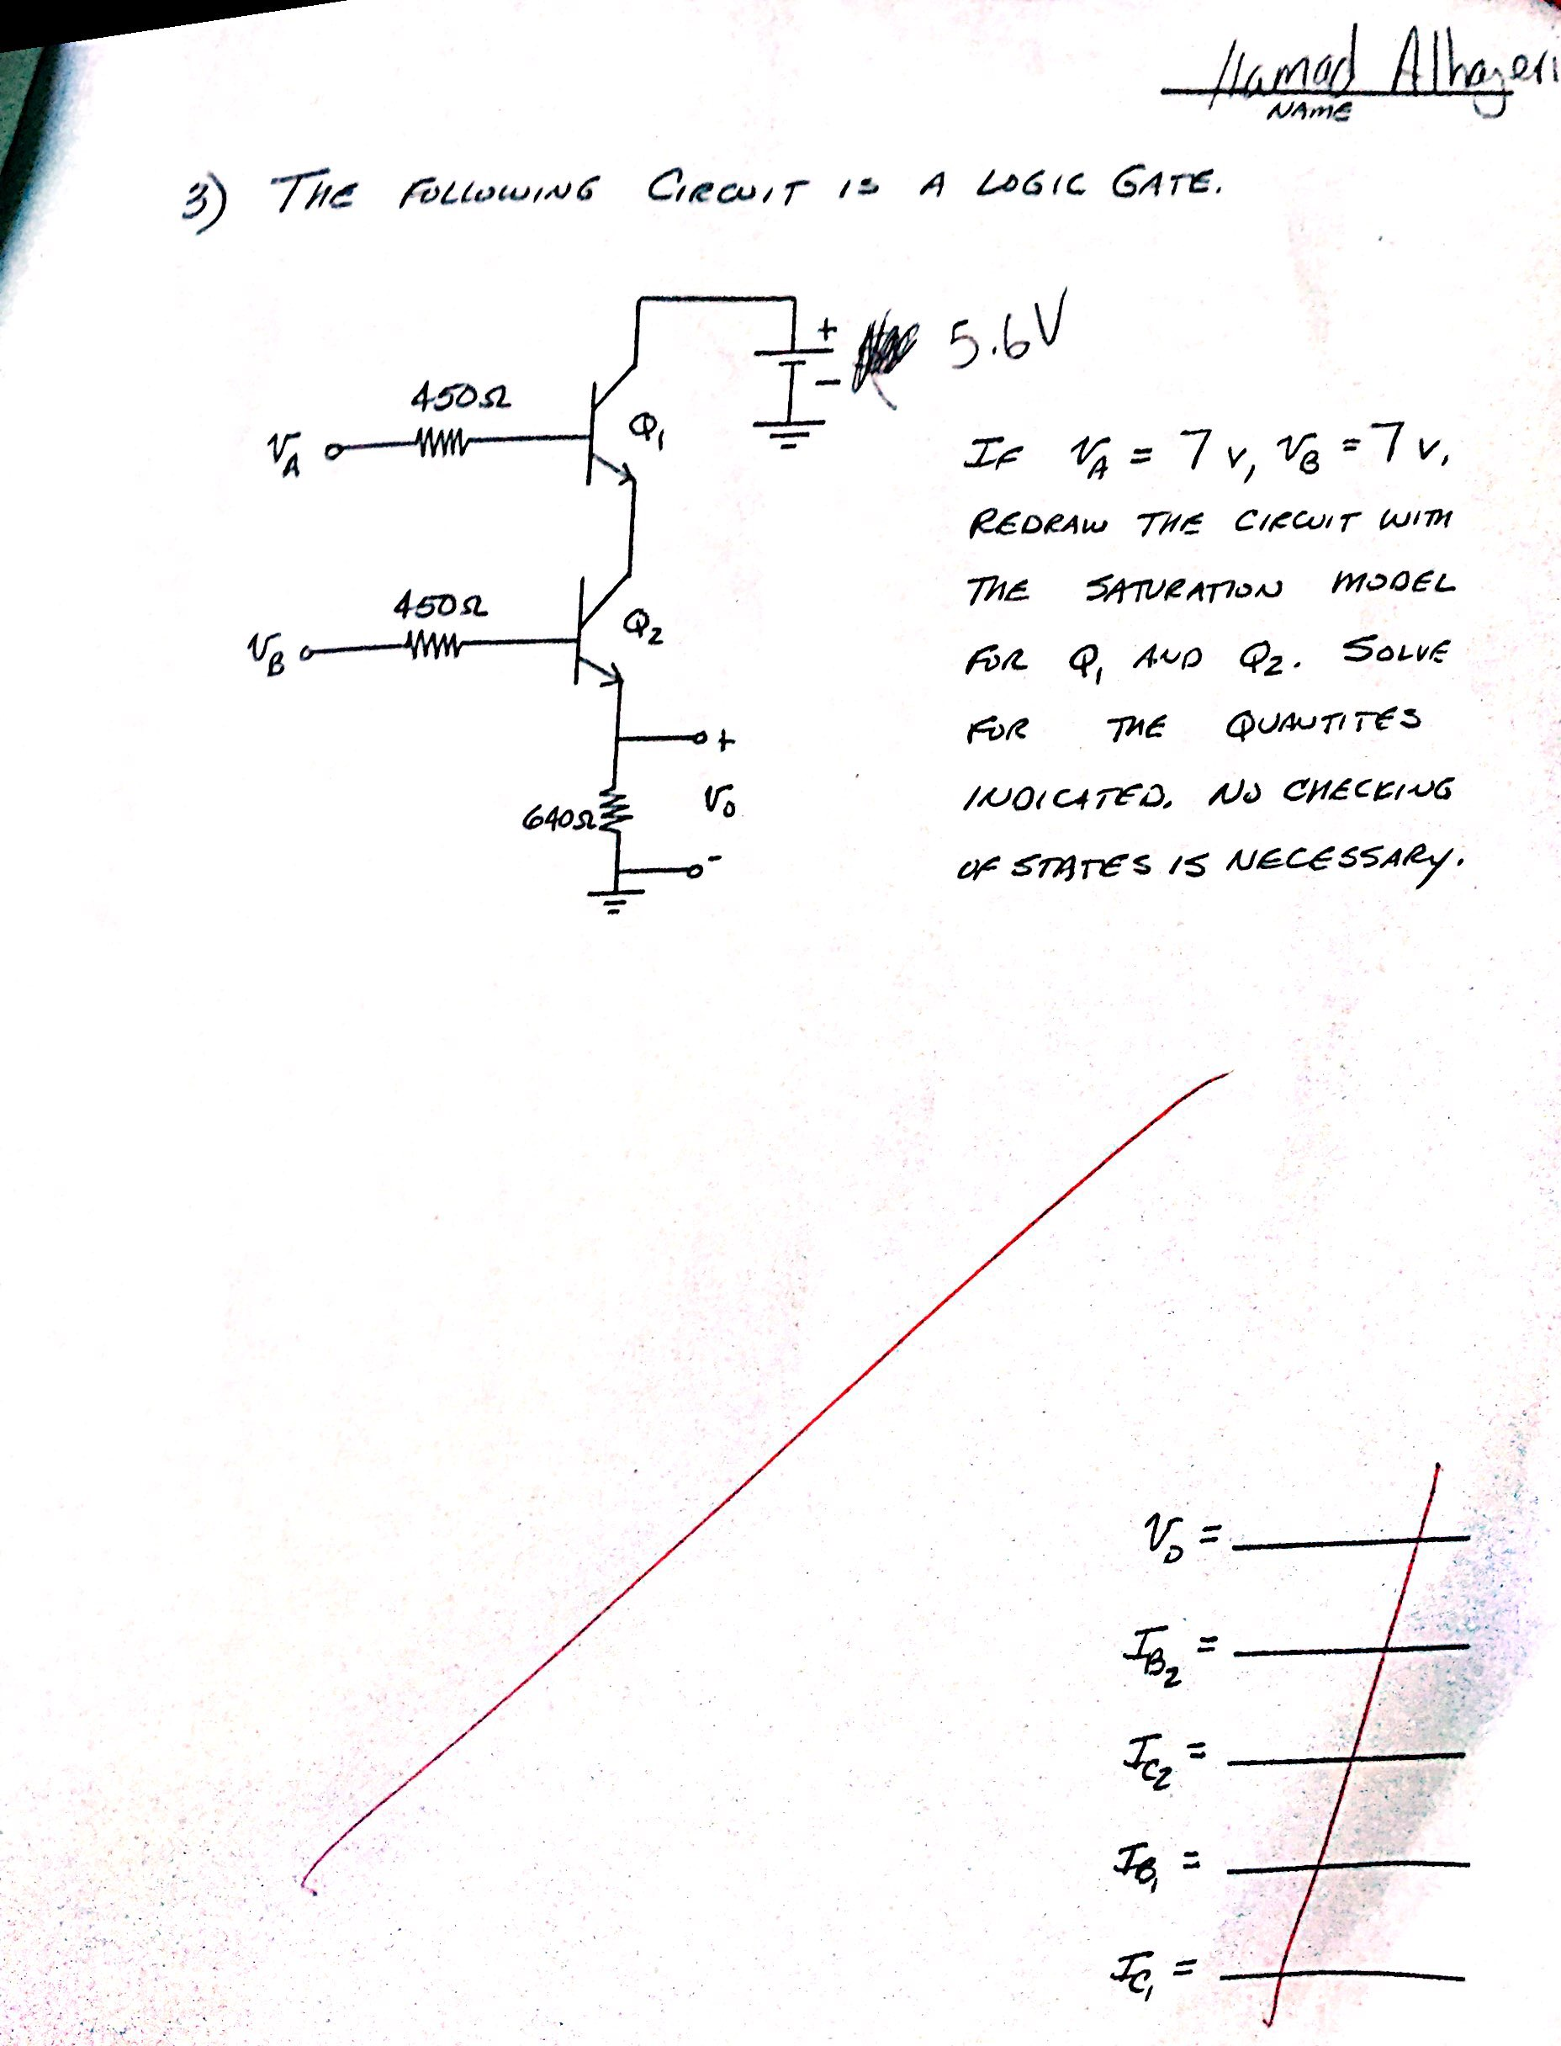 Hamad Alhajeri
NAME
3) THE FOLLOWING CIRCUIT IS A LOGIC GATE.
+
− 5.6V
450Ω
Q₁
V_A
450Ω
Q₂
V_B
+
640Ω V₀
-
IF V_A = 7 V, V_B = 7 V,
REDRAW THE CIRCUIT WITH
THE SATURATION MODEL
FOR Q₁ AND Q₂. SOLVE
FOR THE QUANTITES
INDICATED. NO CHECKING
OF STATES IS NECESSARY.
V₀ =
I_B₂ =
I_C₂ =
I_B₁ =
I_C₁ =